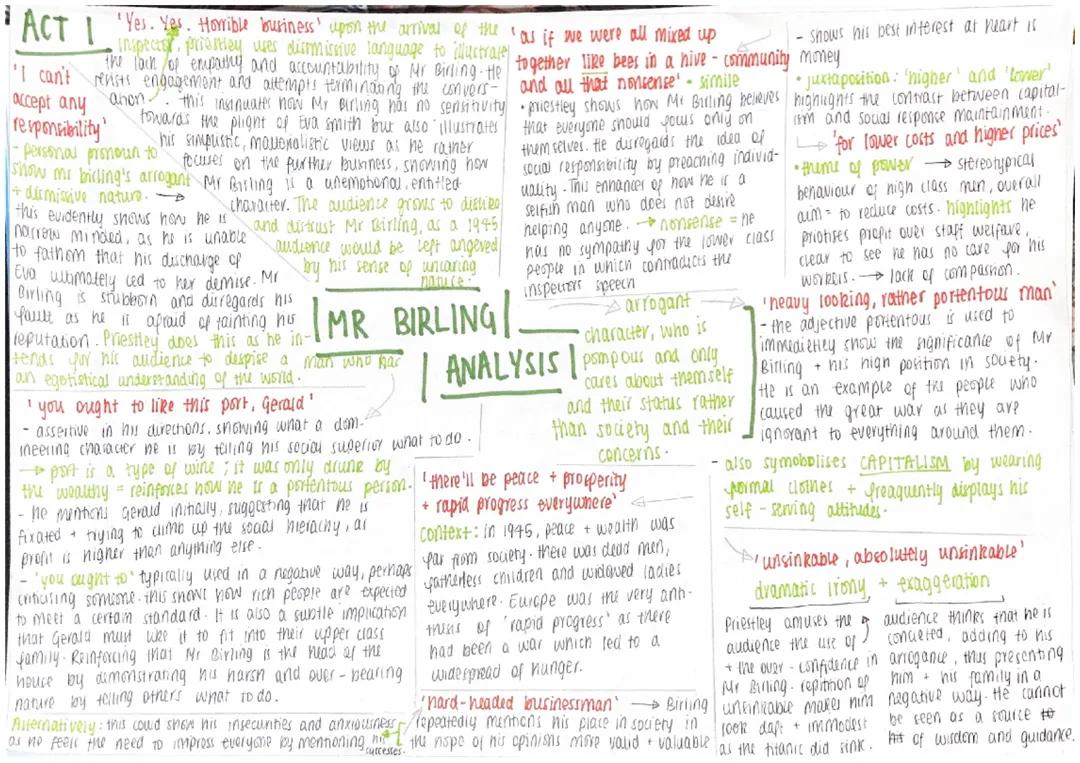 ACT 1
'Yes. Yes. Horrible business' upon the arrival of the
inspector, priestley uses dismissive language to illustrate
the lack of empathy and accountability of Mr Birling. He
resists engagement and attempts terminating the convers-
ation. this insinuates how Mr Birling has no sensitivity
towards the plight of Eva Smith but also illustrates
his simplistic, materialistic views as he rather
focuses on the further business, showing how
Mr Birling is a unemotional, entitled
character. The audience grows to dislike
and distrust Mr Birling, as a 1945
audience would be left angered
by his sense of uncaring
nature.
'I can't
accept any
responsibility'
- personal pronoun to
show mr birling's arrogant
+ dismissive nature. →
this evidently shows how he is
narrow minded, as he is unable
to fathom that his discharge of
Eva ultimately led to her demise. Mr
Birling is stubborn and disregards his
fault as he is afraid of tainting his
reputation. Priestley does this as he in-
tends for his audience to despise a man who has
an egotistical understanding of the world.
'as if we were all mixed up
together like bees in a hive - community
and all that nonsense' • simile
• priestley shows how Mr Birling believes
that everyone should focus only on
themselves. He disregards the idea of
social responsibility by preaching individ-
uality. This enhances of how he is a
selfish man who does not desire
helping anyone. → nonsense = he
has no sympathy for the lower class
people in which contradicts the
inspectors speech
- shows his best interest at heart is
money
• juxtaposition: 'higher' and 'lower'
highlights the contrast between capital-
ism and social response maintainment.
'for lower costs and higher prices'
• theme of power → stereotypical
behaviour of high class men, overall
aim = to reduce costs. highlights he
priotises profit over staff welfare,
clear to see he has no care for his
workers. → lack of compassion.
MR BIRLING
ANALYSIS
arrogant
character, who is
pompous and only
cares about themself
and their status rather
than society and their
concerns.
'heavy looking, rather portentous man'
- the adjective portentous is used to
show the significance of Mr
Birling + his high position in society.
He is an example of the people who
caused the great war as they are
ignorant to everything around them.
- also symobolises CAPITALISM by wearing
formal clothes + freaquently displays his
self-serving attitudes.
'you ought to like this port, Gerald'
- assertive in his directions. showing what a dom-
ineering character he is by telling his social superior what to do.
→ port is a type of wine; it was only drunk by
the wealthy = reinforces how he is a portentous person.
- he mentions Gerald initially, suggesting that he is
fixated + trying to climb up the social hierachy, as
profit is higher than anything else.
- 'you ought to' typically used in a negative way, perhaps
criticising someone. this shows how rich people are expected
to meet a certain standard. It is also a subtle implication
that Gerald must like it to fit into their upper class
family. Reinforcing that Mr Birling is the head of the
house by demonstrating his harsh and over-bearing
nature by telling others what to do.
Alternatively: this could show his insecurities and anxiousness
as he feels the need to impress everyone by mentioning his
successes.
'there'll be peace + prosperity
+ rapid progress everywhere'
context: in 1945, peace + wealth was
far from society. there was dead men,
fatherless children and widowed ladies
everywhere. Europe was the very anti-
thesis of 'rapid progress' as there
had been a war which led to a
widespread of hunger.
'hard-headed businessman' → Birling
repeatedly mentions his place in society in
the hope of his opinions more valid + valuable
'unsinkable, absolutely unsinkable'
dramatic irony + exaggeration
Priestley amuses the
audience the use of
+ the over-confidence in
Mr Birling. repitition of
unsinkable makes him
look daft + immodest
as the titanic did sink.
audience thinks that he is
conceited, adding to his
arrogance, thus presenting
him + his family in a
negative way. He cannot
be seen as a source to
of wisdom and guidance.